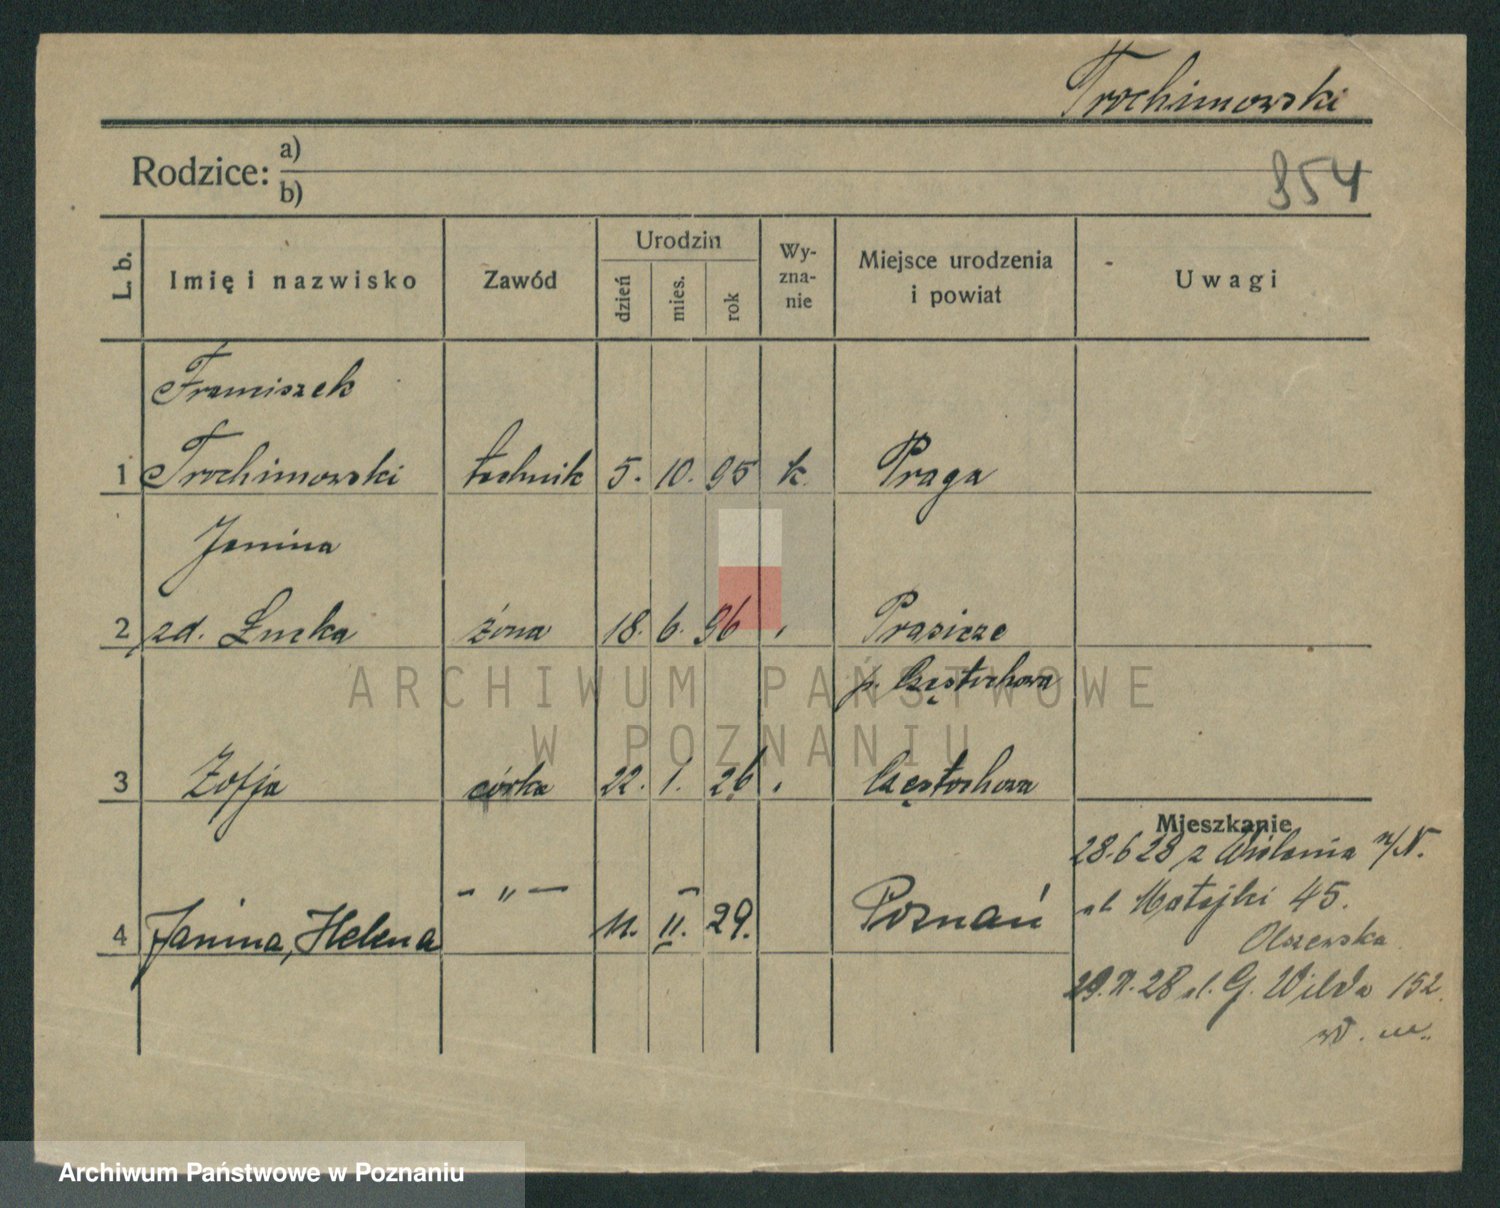 Trochimowski
Rodzice: a)
b)
854
L. b. Imię i nazwisko Zawód Urodzin dzień mies. rok Wy-zna-nie Miejsce urodzenia i powiat Uwagi
Franciszek
1 Trochimowski technik 5. 10. 95 k. Praga
Janina
2 zd. Łucka żona 18. 6. 96 Prasicze
p. Częstochowa
3 Zofja córka 22. 1. 26 Częstochowa
Mieszkanie
28.6 28 z Wielenia n/N.
ul Matejki 45.
Olszewska
4 Janina, Helena - " - 11. II. 29. Poznań
29. 28 ul. G. Wilda 152.
wł. m.
ARCHIWUM PAŃSTWOWE
W POZNANIU
Archiwum Państwowe w Poznaniu